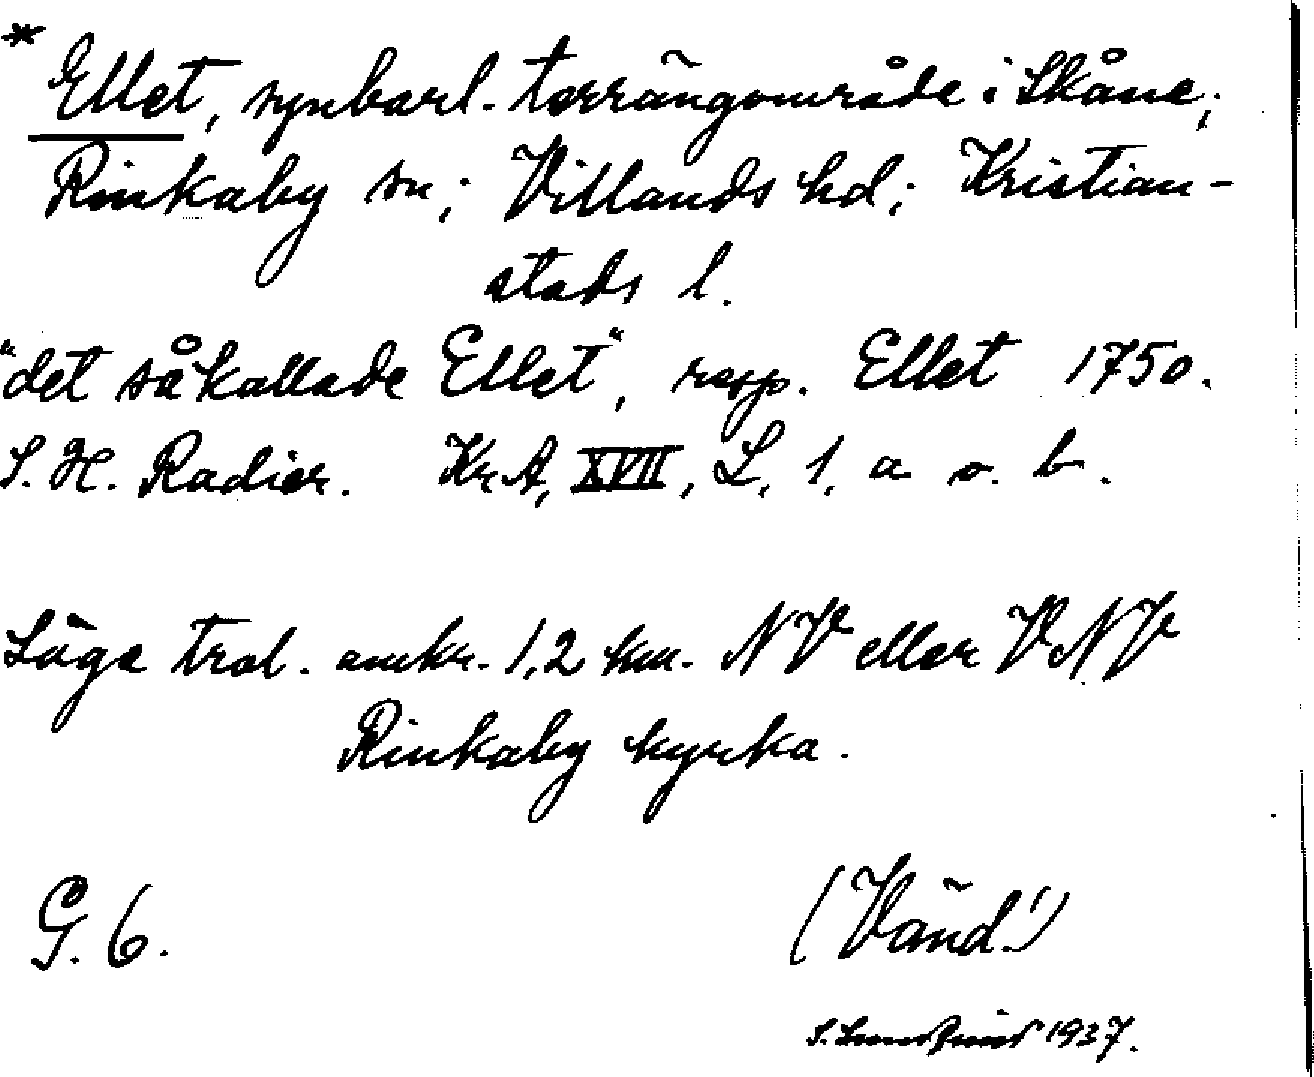 * Ellet, synbarl. terrängområde i Skåne;
Rinkaby sn; Villands hd; Kristian-
stads l.
"det såkallade Ellet", resp. Ellet 1750.
S. H. Radier. Kr A, XVII, L, 1, a o. b.
Läge trol. omkr. 1,2 km. NV eller VNV
Rinkaby kyrka.
G. 6.
(Vänd!)
S. 1937.